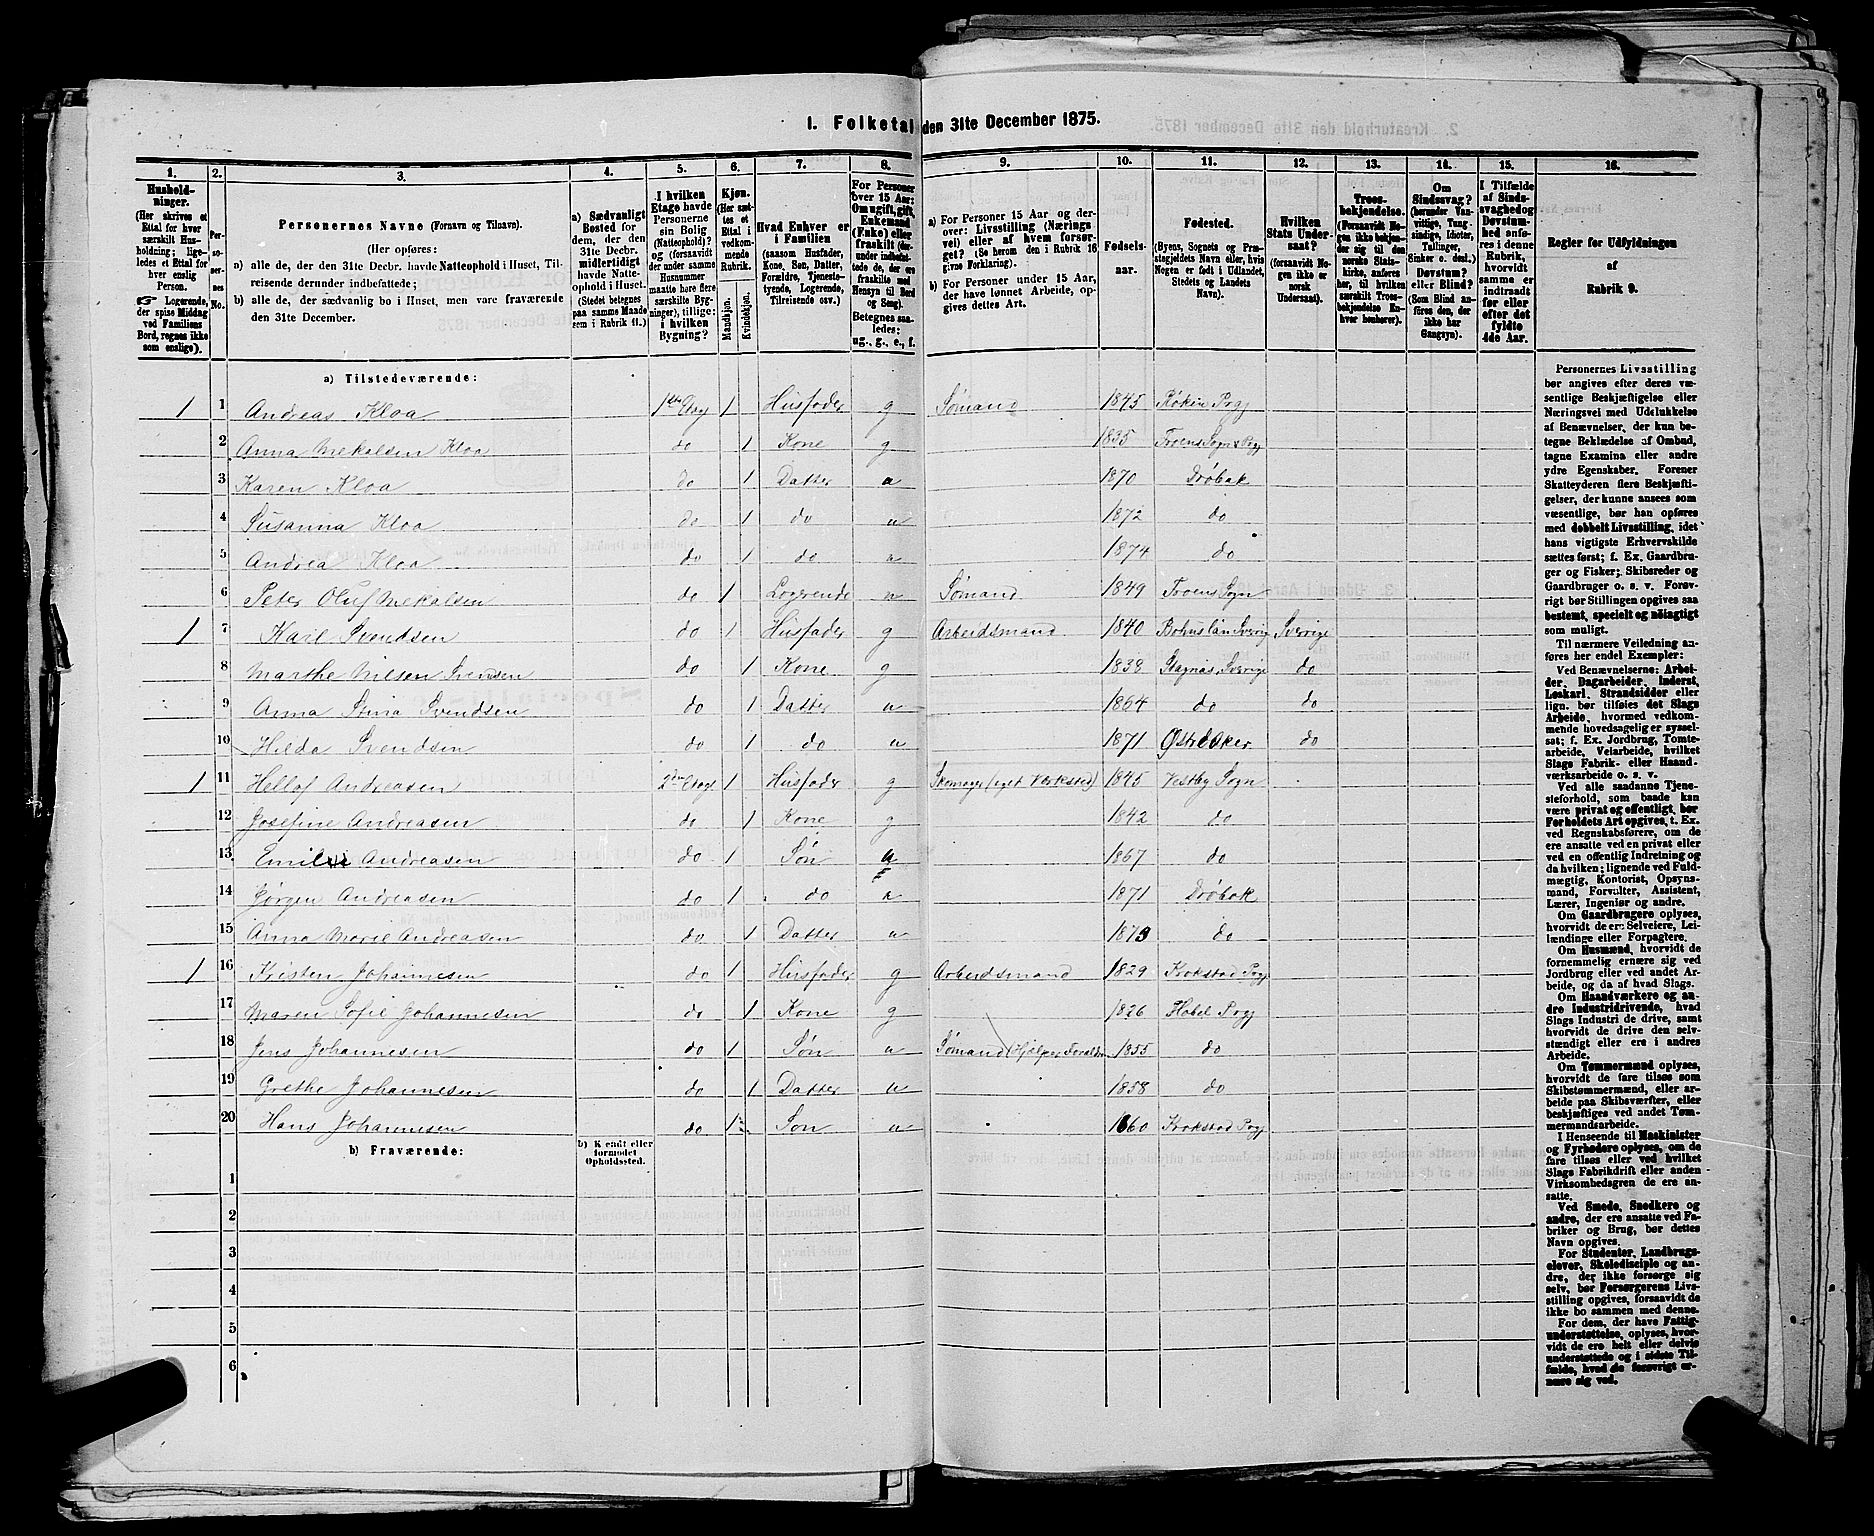 1. Folketal den 31te December 1875.
1. 2. 3. 4. 5. 6. 7. 8. 9. 10. 11. 12. 13. 14. 15. 16.
Husholdninger. (Her skrives et Ettal for hver særskilt Husholdning; ligeledes et Ettal for hver enslig Person. Logerende, der spise Middag ved Familiens Bord, regnes ikke som enslige).
Personernes No.
Personernes Navne (Fornavn og Tilnavn).
(Her opføres:
a) alle de, der den 31te Decbr. havde Natteophold i Huset, Tilreisende derunder indbefattede;
b) alle de, der sædvanlig bo i Huset, men vare fraværende den 31te December.
a) Sædvanligt Bosted for dem, der den 31te Decbr. midlertidigt havde Natteophold i Huset. (Stedet betegnes paa samme Maade som i Rubrik 11.)
I hvilken Etage havde Personerne sin Bolig (Natteophold)? og (forsaavidt der under samme Husnummer maatte høre flere særskilte Bygninger), tillige: i hvilken Bygning?
Kjøn. (Her sættes et Ettal i vedkommende Rubrik.
Mandkjøn. Kvindekjøn.
Hvad Enhver er i Familien (saasom Husfader, Kone, Søn, Datter, Forældre, Tjenestetyende, Logerende, Tilreisende osv.)
For Personer over 15 Aar: Om ugift, gift, Enkemand (Enke) eller fraskilt (derunder indbefattede de, der ere fraskilte med Hensyn til Bord og Seng). Betegnes saaledes: ug., g., e., f.
a) For Personer 15 Aar og derover: Livsstilling (Næringsvei) eller af hvem forsørget? (Se herom den i Rubrik 16 givne Forklaring).
b) For Personer under 15 Aar, der have lønnet Arbeide, opgives dettes Art.
Fødselsaar.
Fødested. (Byens, Sognets og Præstegjeldets Navn, eller, hvis Nogen er født i Udlandet, Stedets og Landets Navn).
Hvilken Stats Undersaat? (Opgives ikke for norsk Undersaat).
Troesbekjendelse. (Forsaavidt Nogen ikke bekjender sig til den norske Statskirke, anføres her, til hvilken særskilt Troesbekjendelse Enhver henhører).
Om Sindssvag? (herunder Vanvittige, Tungsindige, Idioter, Tullinger, Sinker o. desl.) Døvstum? eller Blind? (Som Blind anføres den, der ikke har Gangsyn).
I Tilfælde af Sindssvaghed og Døvstumhed anføres i denne Rubrik, hvorvidt samme er indtraadt før eller efter det fyldte 4de Aar.
Regler for Udfyldningen af Rubrik 9.
a) Tilstedeværende:
1 1 Andreas Kloa 1ste Etage 1 Husfader g Sømand 1845 Røken Prgj
2 Anna Mekalsen Kloa do 1 Kone g 1835 Froens Sogn & Prgj
3 Karen Kloa do 1 Datter u 1870 Drøbak
4 Susanna Kloa do 1 do u 1872 do
5 Andrea Kloa do 1 do u 1874 do
6 Peter Oluf Mekalsen do 1 Logerende u Sømand 1849 Froens Sogn
1 7 Karl Svendsen do 1 Husfader g Arbeidsmand 1840 Bohuslän Sverig Sverige
8 Marthe Nilsen Svendsen do 1 Kone g 1838 Sverige do
9 Anna Stina Svendsen do 1 Datter u 1864 do do
10 Hilda Svendsen do 1 do u 1871 do
1 11 Hellof Andreasen 2den Etage 1 Husfader g Skomager (eget Værksted) 1845 Vestby Sogn
12 Josefine Andreasen do 1 Kone g 1842 do
13 Andreasen do 1 Søn u 1867 do
14 Jørgen Andreasen do 1 do u 1871 Drøbak
15 Anna Marie Andreasen do 1 Datter u 1873 do
1 16 Kristen Johannesen do 1 Husfader g Arbeidsmand 1829 Krokstad Prgj
17 Maren Sofie Johannesen do 1 Kone g 1826 Hobel Prgj
18 Jens Johannesen do 1 Søn u Sømand (Hjælper Foraldre 1855 do
19 Grethe Johannesen do 1 Datter u 1858 do
20 Hans Johannesen do 1 Søn u 1860 Krokstad Prgj
b) Fraværende:
b) Kjendt eller formodet Opholdssted.
1
2
3
4
5
6
Personernes Livsstilling
bør angives efter deres væ-
sentlige Beskjæftigelse eller
Næringsvei med Udelukkelse
af Benævnelser, der kun be-
tegne Beklædelse af Ombud,
tagne Examina eller andre
ydre Egenskaber. Forener
Skatteyderen flere Beskjæfti-
gelser, der kunne ansees som
væsentlige, bør han opføres
med dobbelt Livsstilling, idet
hans vigtigste Erhvervskilde
sættes først; f. Ex. Gaardbru-
ger og Fisker; Skibsreder og
Gaardbruger o. s. v. Forøv-
rigt bør Stillingen opgives saa
bestemt, specielt og nøiagtigt
som muligt.
Til nærmere Veiledning an-
føres her endel Exempler:
Ved Benævnelserne: Arbei-
der, Dagarbeider, Inderst,
Løskarl, Strandsidder eller
lign. bør tilføies det Slags
Arbeide, hvormed vedkom-
mende hovedsagelig er syssel-
sat; f. Ex. Jordbrug, Tomte-
arbeide, Veiarbeide, hvilket
Slags Fabrik- eller Haand-
værksarbeide o. s. v.
Ved alle saadanne Tjene-
steforhold, som baade kan
være privat og offentligt, bør
Forholdets Art opgives, t. Ex.
ved Regnskabsførere, om de
ere ansatte ved en privat eller
ved en offentlig Indretning og
da hvilken; lignende ved Fuld-
mægtig, Kontorist, Opsyns-
mand, Forvalter, Assistent,
Lærer, Ingeniør og andre.
Om Gaardbrugere oplyses,
hvorvidt de ere Selveiere, Lei-
lændinge eller Forpagtere.
Om Husmænd, hvorvidt de
fornemmelig ernære sig ved
Jordbrug eller ved andet Ar-
beide, og da af hvad Slags.
Om Haandværkere og an-
dre Industridrivende, hvad
Slags Industri de drive, samt
hvorvidt de drive den selv-
stændigt eller ere i andres
Arbeide.
Om Tømmermænd oplyses,
hvorvidt de fare tilsøs som
Skibstømmermænd, eller ar-
beide paa Skibsværfter, eller
beskjæftiges ved andet Tøm-
mermandsarbeide.
I Henseende til Maskinister
og Fyrbødere oplyses, om de
fare tilsøs eller ved hvilket
Slags Fabrikdrift eller anden
Virksomhedsgren de ere an-
satte.
Ved Smede, Snedkere og
andre, der ere ansatte ved Fa-
briker og Brug, bør dettes
Navn opgives.
For Studenter, Landbrugs-
elever, Skoledisciple og an-
dre, der ikke forsørge sig
selv, bør Forsørgerens Livs-
stilling opgives, forsaavidt de
ikke bo sammen med denne.
For dem, der have Fattig-
understøttelse, oplyses, hvor-
vidt de ere helt eller delvis
understøttede og i sidste Til-
fælde, hvad de forøvrigt er-
nære sig ved.